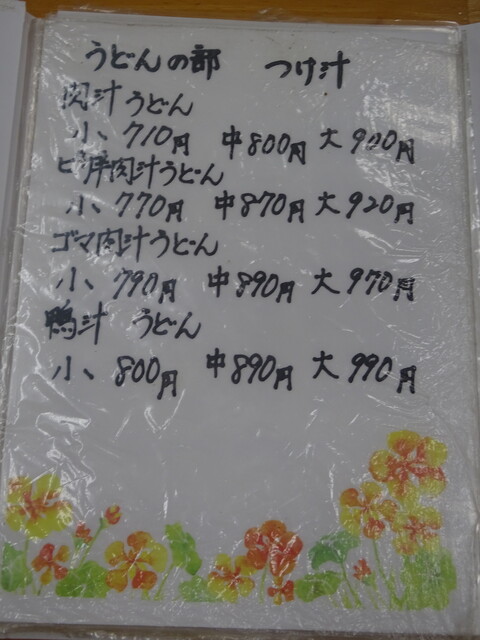 うどんの部 つけ汁
肉汁うどん
小、710円 中800円 大900円
ピリ辛肉汁うどん
小、770円 中870円 大920円
ゴマ肉汁うどん
小、790円 中890円 大970円
鴨汁 うどん
小、800円 中890円 大990円